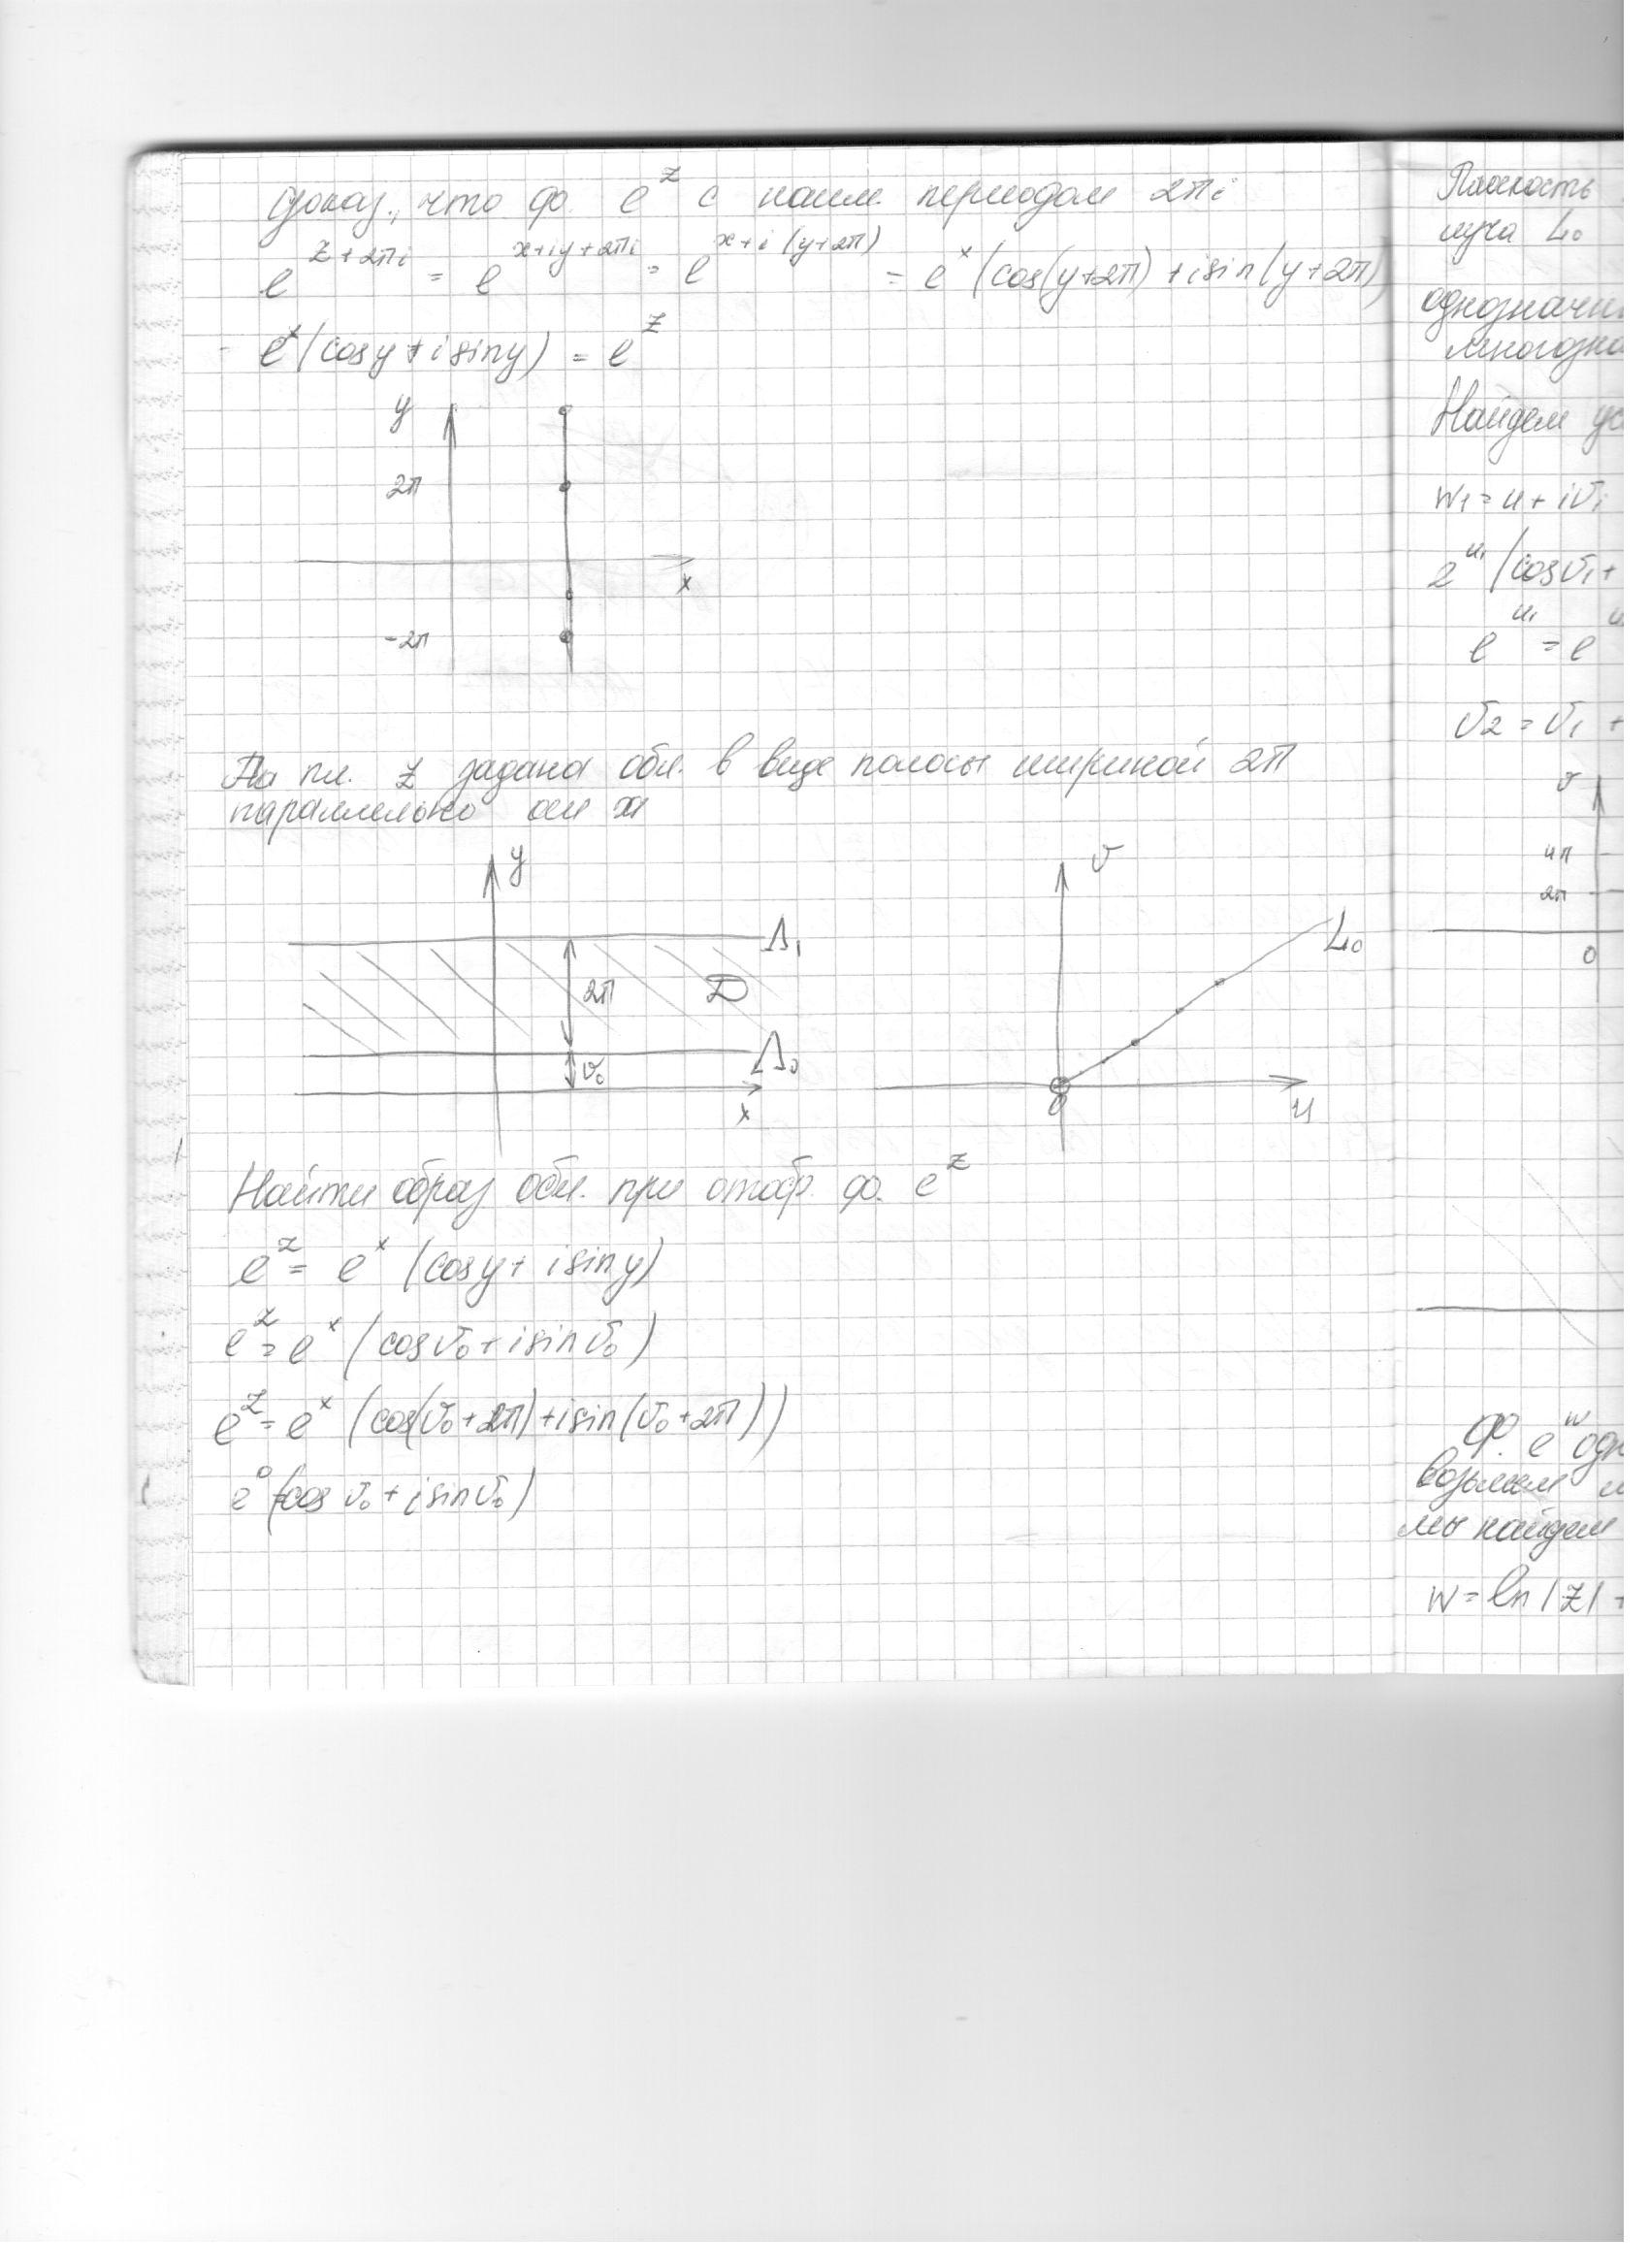 Доказ., что ф. e^z с наим. периодом 2πi
e^{z+2πi} = e^{x+iy+2πi} = e^{x+i(y+2π)} = e^x (cos(y+2π) + i sin(y+2π)
= e^x (cos y + i sin y) = e^z
y
2π
x
-2π
На пл. z задана обл. в виде полосы шириной 2π
параллельно оси x
y
Λ₁
2π
D
Λ₀
v₀
x
v
L₀
0
u
Найти образ обл. при отобр. ф. e^z
e^z = e^x (cos y + i sin y)
e^z = e^x (cos v₀ + i sin v₀)
e^z = e^x (cos(v₀+2π) + i sin(v₀+2π))
e^0 (cos v₀ + i sin v₀)
Плоскость
луча L₀
однозначн
многозна
Найдем ус
w₁ = u + iv₁
e^{u₁} (cos v₁ +
e^{u₁} = e^u
v₂ = v₁ +
v
4π
2π
0
Ф. e^w одн
возьмем
мы найдем
w = ln |z| +